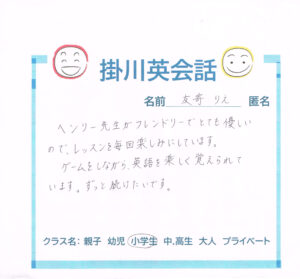 掛川英会話
名前 友寄 りえ 匿名
ヘンリー先生がフレンドリーでとても優しい
ので、レッスンを毎回楽しみにしています。
ゲームをしながら、英語を楽しく覚えられて
います。ずっと続けたいです。
クラス名: 親子 幼児 小学生 中,高生 大人 プライベート